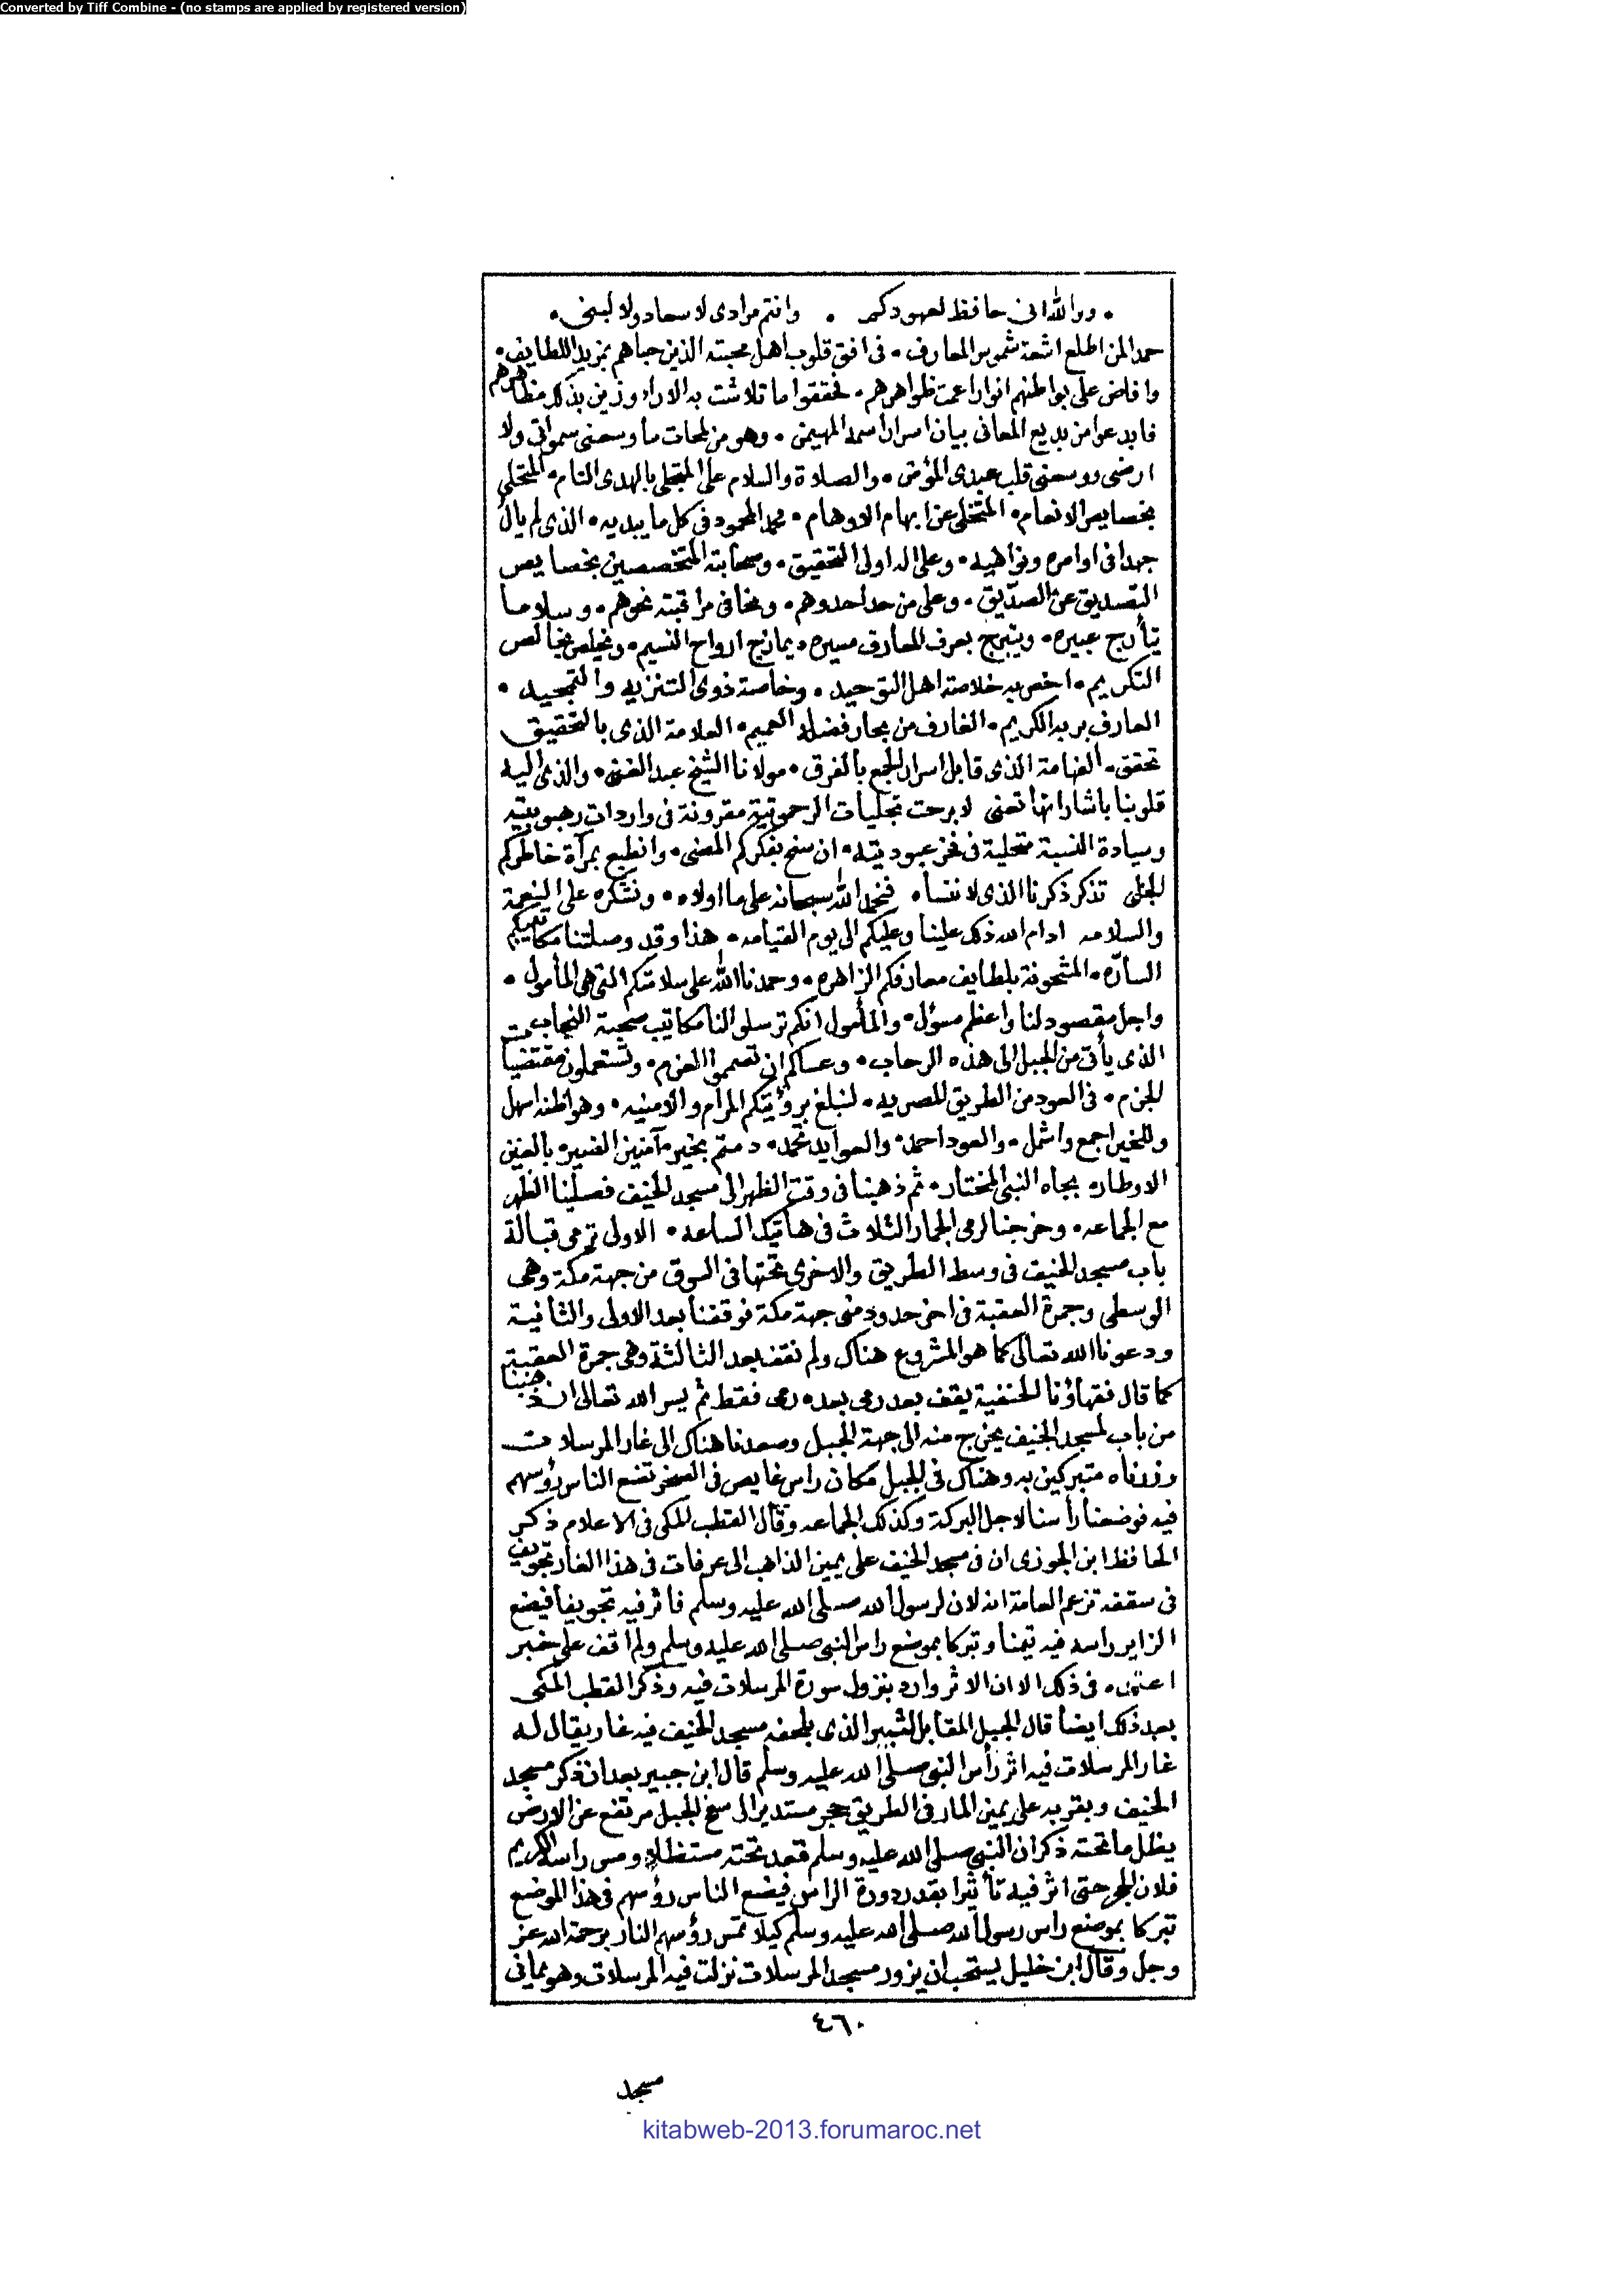 Converted by Tiff Combine - (no stamps are applied by registered version)
ووالله انى حافظ لعهودكم • وانتم مرادى لا سعاد ولا لبنى •
حمدا لمن اطلع اشعة شموس المعارف • فى افق قلوب اهل محبته الذين حباهم بمزيد اللطايف •
وافاض على بواطنهم انوارا عمت ظواهرهم • فحققوا ما تلاشت به الاراء وزين بذلك مظاهرهم
فابدعوا من بديع المعانى بيان اسرار اسمه المهيمن • وهو من لمحات ما وسعنى سمواتى ولا
ارضى ووسعنى قلب عبدى المؤمن • والصلاة والسلام على المتجلى بالهدى التام • المتحلى
بخصايص الانعام • المتخلى عن ابهام الاوهام • محمد المحمود فى كل ما يبديه • الذى لم يال
جهدا فى اوامره ونواهيه • وعلى اله اولى التحقيق • وصحابته المتخصصين بخصايص
التصديق عن الصدّيق • وعلى من حدا حدوهم • ونحا فى مراقبته نحوهم • وسلاما
يتأرج عبيره • ويتبرج بعرف المعارف مسيره • يمازج ارواح النسيم • ويخلص بخالص
التكريم • اخص به خلاصة اهل التوحيد • وخاصة ذوى التنزيه والتمجيد •
العارف بربه الكريم • الغارف من بحار فضله العميم • العلامة الذى بالتحقيق
تحقق • الفهامة الذى قابل اسرار الجمع بالفرق • مولانا الشيخ عبد الغنى • والذى اليه
قلوبنا باشاراتها تعنى لا برحت تجليات الرحموتية مقرونة فى واردات رهبوبيته
وسيادة النسبة متحلية فى فخر عبوديته • ان سنح بفكركم المضى • وانطبع بمرآة خاطركم
الجلى تذكر ذكرنا الذى لا ننساه فنحمد الله سبحانه على ما اولاه • ونشكره على النعمة
والسلامه ادام الله ذلك علينا وعليكم الى يوم القيامه • هذا وقد وصلتنا مكاتيبكم
السآره • المشحونة بلطايف معارفكم الزاهره • وحمدنا الله على سلامتكم التى هى المأمول •
واجل مقصود لنا واعظم مسؤل • والمأمول انكم ترسلوا لنا مكاتيب صحبة النجاب
الذى يأتى من الجبل الى هذه الرحاب • وعساكم ان تصمموا العزم • وتستعملون مقتضيات
الجزم • فى العود من الطريق المصريه • لنبلغ برؤيتكم المرام والامنيه • وهو اظنه اسهل
وللخير اجمع واشمل • والعود احمد • والعوايد تحمد • دمتم بخير آمنين
الاوطار • بجاه النبى المختار • ثم ذهبنا فى وقت الظهر الى مسجد الخيف فصلينا الظهر
مع الجماعه • وخرجنا لرمى الجمار الثلاث فى هاتيك الساعه • الاولى ترمى قبالة
باب مسجد الخيف فى وسط الطريق والاخرى تحتها فى السوق من جهة مكة وهى
الوسطى وجمرة العقبة فى اخر حدود منى جهة مكة فوقفنا بعد الاولى والثانية
ودعونا الله تعالى كما هو المشروع هناك ولم نقف بعد الثالثة وهى جمرة العقبة
كما قال فقهاؤنا الحنفية يقف بعد رمى بعده رمى فقط ثم يسر الله تعالى ان ذهبنا
من باب لمسجد الخيف يخرج منه الى جهة الجبل وصعدنا هناك الى غار المرسلات
وزرناه متبركين به وهناك فى الجبل مكان راس غايص فى الصخر تضع الناس رؤسهم
فيه فوضعنا رأسنا لاجل البركة وكذلك الجماعه وقال القطب المكى فى الاعلام ذكر
الحافظ ابن الجوزى ان فى مسجد الخيف على يمين الذاهب الى عرفات فى هذا الغار تجويف
فى سقفه تزعم العامة انه لان لرسول الله صلى الله عليه وسلم فاثر فيه تجويفا فيضع
الزاير راسه فيه تيمنا وتبركا بموضع راس النبى صلى الله عليه وسلم ولم اقف على خبر
اعتمده فى ذلك الا ان الاثر وارد بنزول سورة المرسلات فيه وذكر القطب المكى
بعد ذلك ايضا قال الجبل المقابل لثبير الذى بلحفه مسجد الخيف فيه غار يقال له
غار المرسلات فيه اثر رأس النبى صلى الله عليه وسلم قال ابن جبير بعد ان ذكر مسجد
الخيف وبقربه على يمين المار فى الطريق حجر مستدير الى سفح الجبل مرتفع عن الارض
يظل ما تحته ذكر ان النبى صلى الله عليه وسلم قعد تحته مستظلا ومس راسه الكريم
فلان الحجر حتى اثر فيه تأثيرا بقدر دورة الراس فيضع الناس رؤسهم فى هذا الموضع
تبركا بموضع راس رسول الله صلى الله عليه وسلم كيلا تمس رؤسهم النار برحمة الله عز
وجل وقال ابن خليل يستحب ان يزور مسجد المرسلات نزلت فيه المرسلات وهو يمانى
٤٦٠
مسجد
kitabweb-2013.forumaroc.net